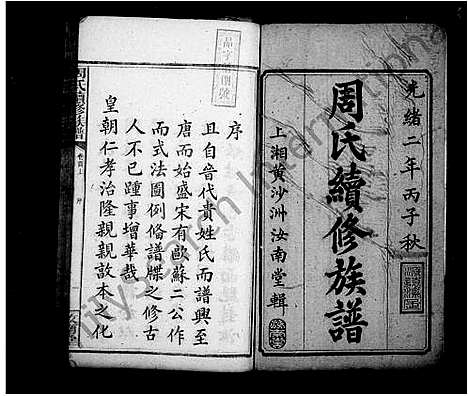 光緒二年丙子秋
周氏續修族譜
上湘黄沙洲汝南堂輯
序
且自晉代貴姓氏而譜興至
唐而始盛宋有歐蘇二公作
而式法圖例脩譜牒之修古
人不已踵事增華哉
皇朝仁孝治隆親親敦本之化
周氏續修族譜
卷首上
序